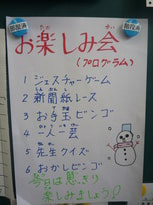 お楽しみ会
(プログラム)
1 ジェスチャーゲーム
2 新聞紙レース
3 お手玉ビンゴ
4 一人一芸
5 先生クイズ
6 おかしビンゴ
今日は思いっきり
楽しみましょう♪